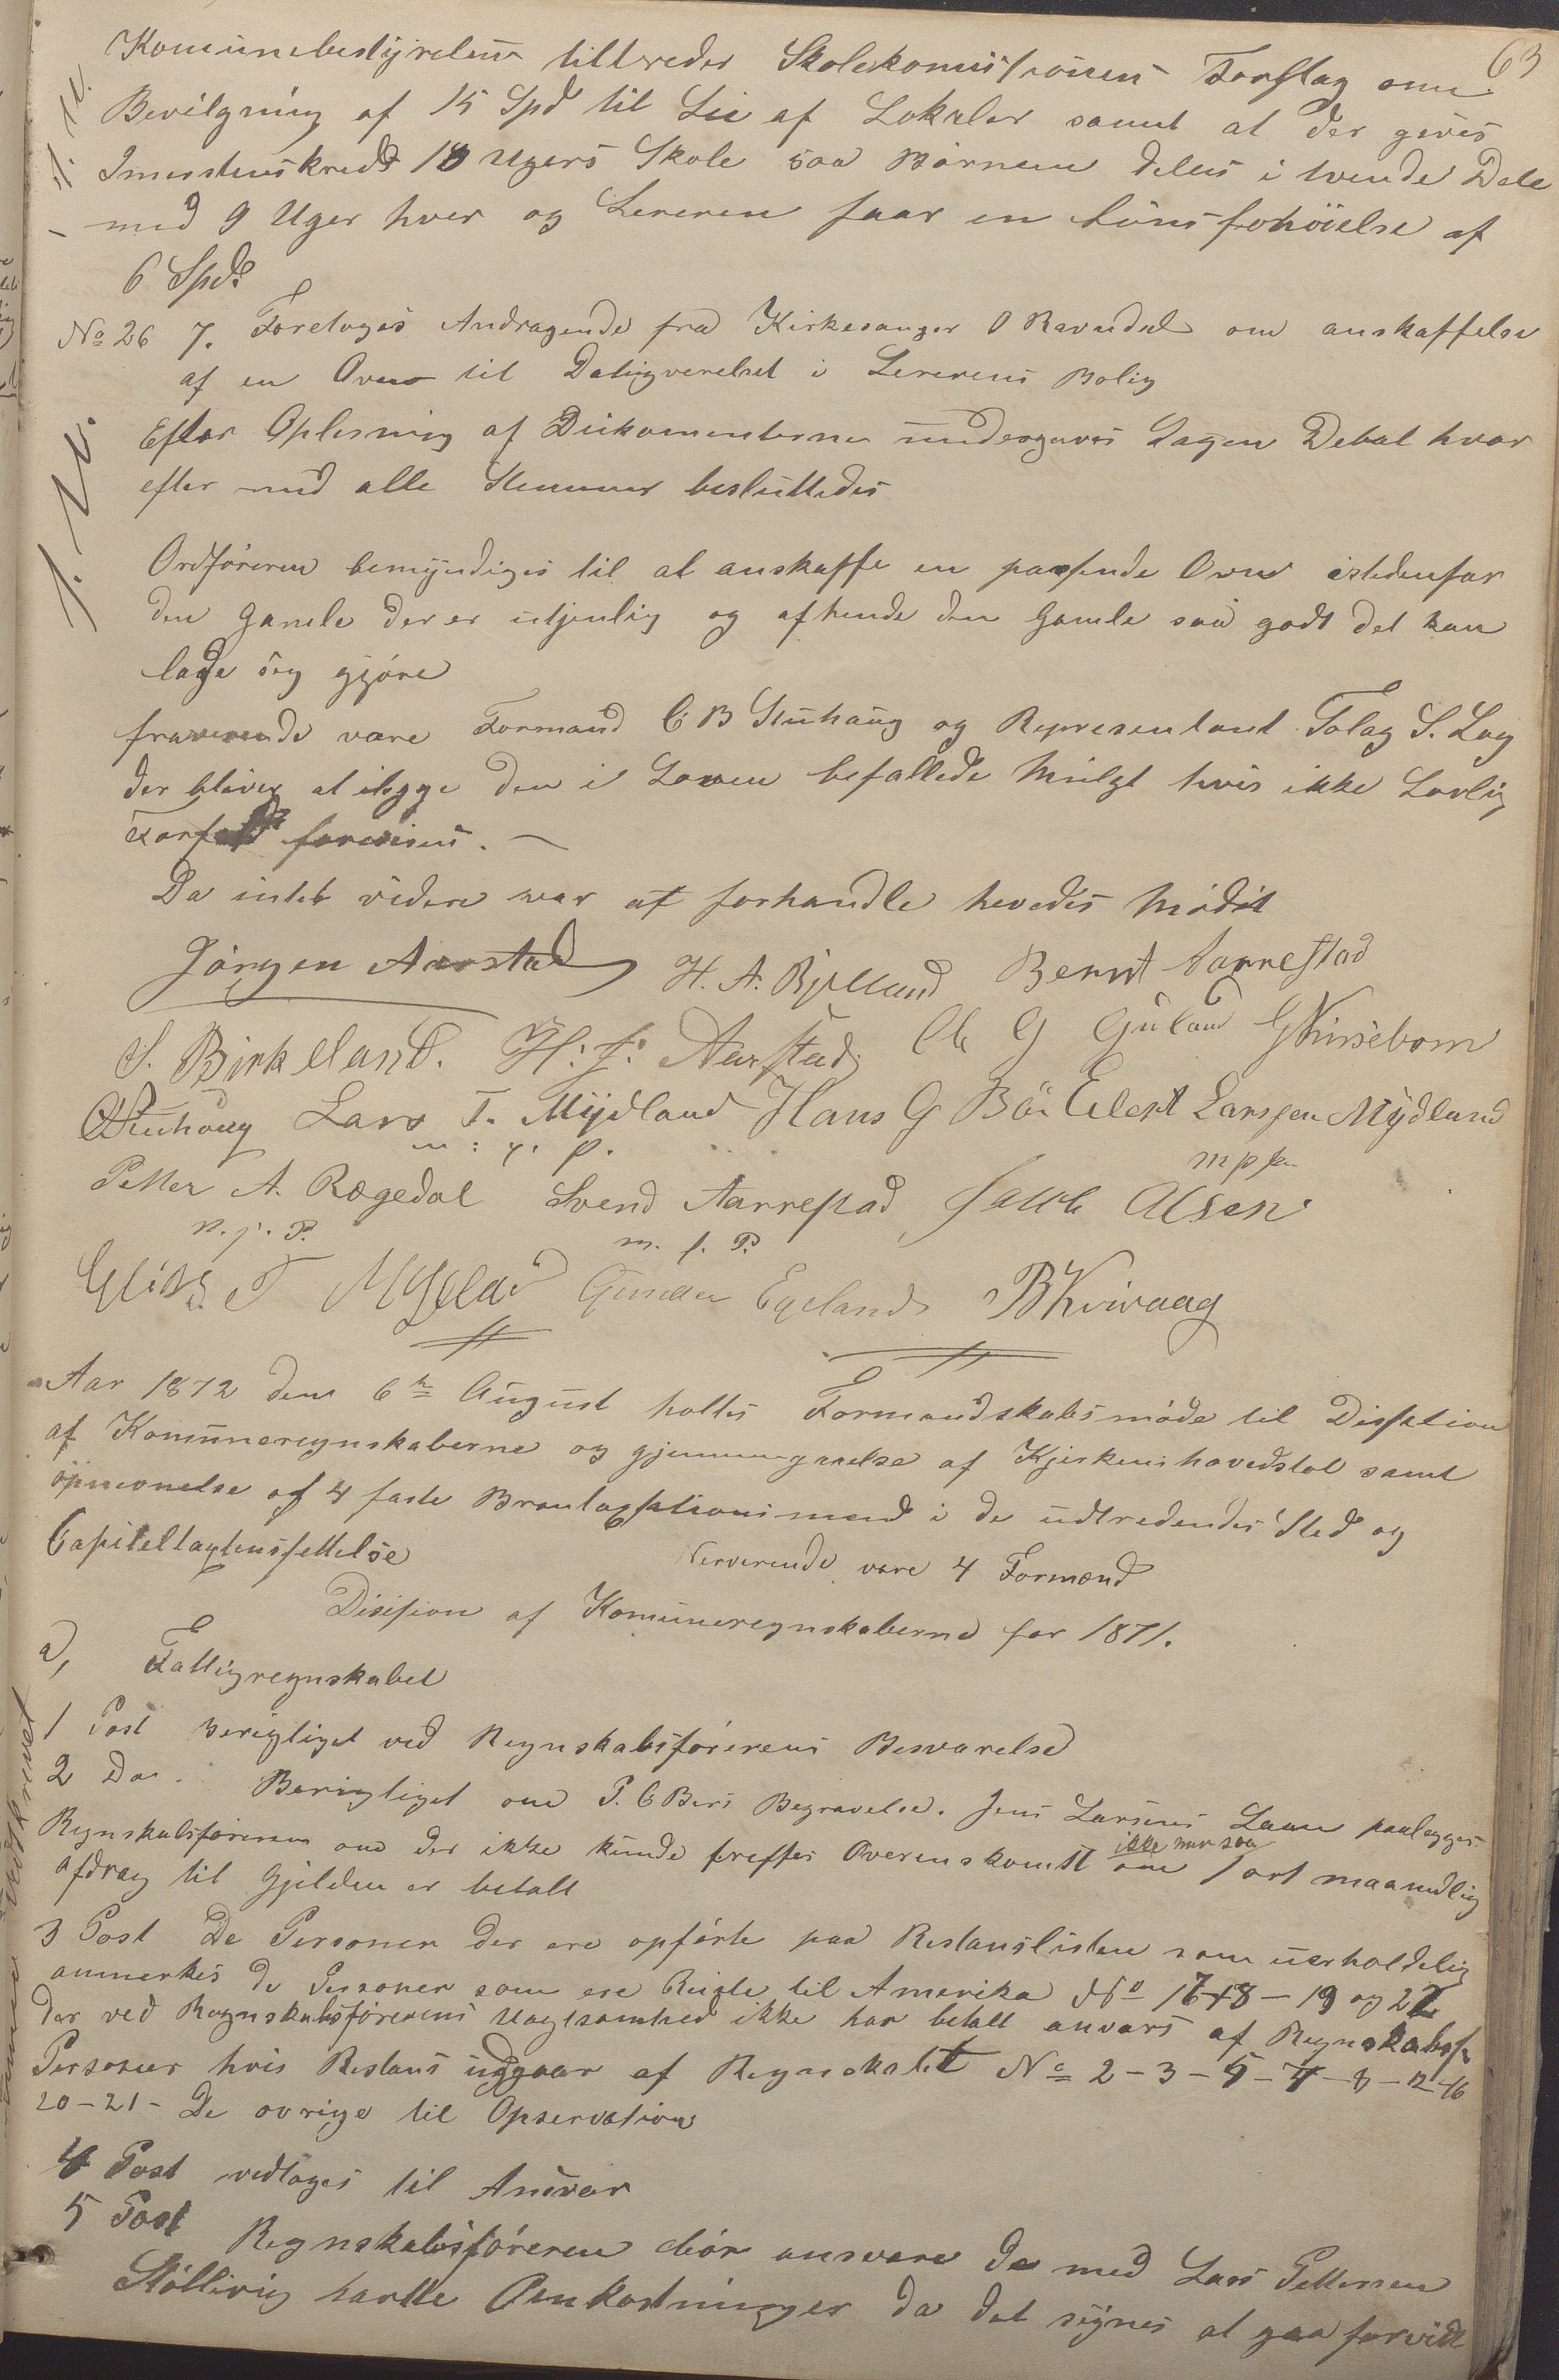 63
Komunebestyrelsen tiltreder Skolekomissionens Forslag om
Bevilgning af 15 Spd til Leie af Lokaler samt at der gives
Imenskreds 18 Ugers Skole saa Børnene deles i tvende Dele
med 9 Uger hver og Lereren faar en Lønsforhøielse af
6 Spd.
No 26 7. Foretoges Andragende fra Kirkesanger O Ravndal om anskaffelse
af en Oven til Dagligverelset i Lererens Bolig
Efter Oplesning af Dokumenterne undergaves Sagen Debat hvor
efter med alle Stemmer besluttedes
Ordføreren bemyndiges til at anskaffe en passende Oven istedenfor
den gamle der er utjenlig og afhende den Gamle saa godt det kan
lade sig gjøre
fraverende vare Formand C B Stuhaug og Representant Tolag S. Log
der bliver at ilegge den i Loven befallede Mulgt hvis ikke Lovlig
Forfald forevises. —
Da intet videre var at forhandle hevedes Mødet
Jørgen Aarstad H. A. Bjelland Bernt Aarrestad
S. Birkeland. H. J. Aarstad Ch G Guland G Kirsebom
Stuhoug Lars T. Mydland Hans G Bø Eilert Larssen Mydland
m: p. p. m p p.
Petter A. Rægedal Svend Aarrestad Jacob Olsen
m. p. P. m. p. P.
Elias T Mydlad Gunder Egeland B Kvivaag
Aar 1872 den 6te August holtes Formandskabsmøde til Desision
af Komuneregnskaberne og gjennemgaaelse af Kjirkens hovedstol samt
opnevnelse af 4 faste Brantagstionsmend i de udtredendes Sted og
Capiteltagtensfettelse Nerverende vare 4 Formend
Disision af Komuneregnskaberne for 1871.
a, Fattigregnskabet
1 Post Berigtiget ved Regnskabsførerens Besvarelse
2 Do. Berigtiget om P. C Bers Begravelse. Jens Larsens Laan paalegges
Regnskabsføreren om der ikke kunde treffes Overenskomst om ikke mer saa 1 ort maanedlig
Afdrag til Gjelden er betalt
3 Post De Personer der ere opførte paa Restanslisten som uerholdelig
anmerkes de Personer som ere Reiste til Amerika No 17-18-19 og 22
der ved Regnskabsførerens Uagtsomhed ikke har betalt anvars af Regnskabsf
Personer hvis Restans udgaar af Regnskabet No 2-3-5-7-8-12-16
20-21- De øvrige til Opservation
4 Post vedtages til Ansvar
5 Post Regnskabsføreren bør ansvare de med Lars Pettersen
Støllevig havte Omkostninger da det synes at gaa forvidt